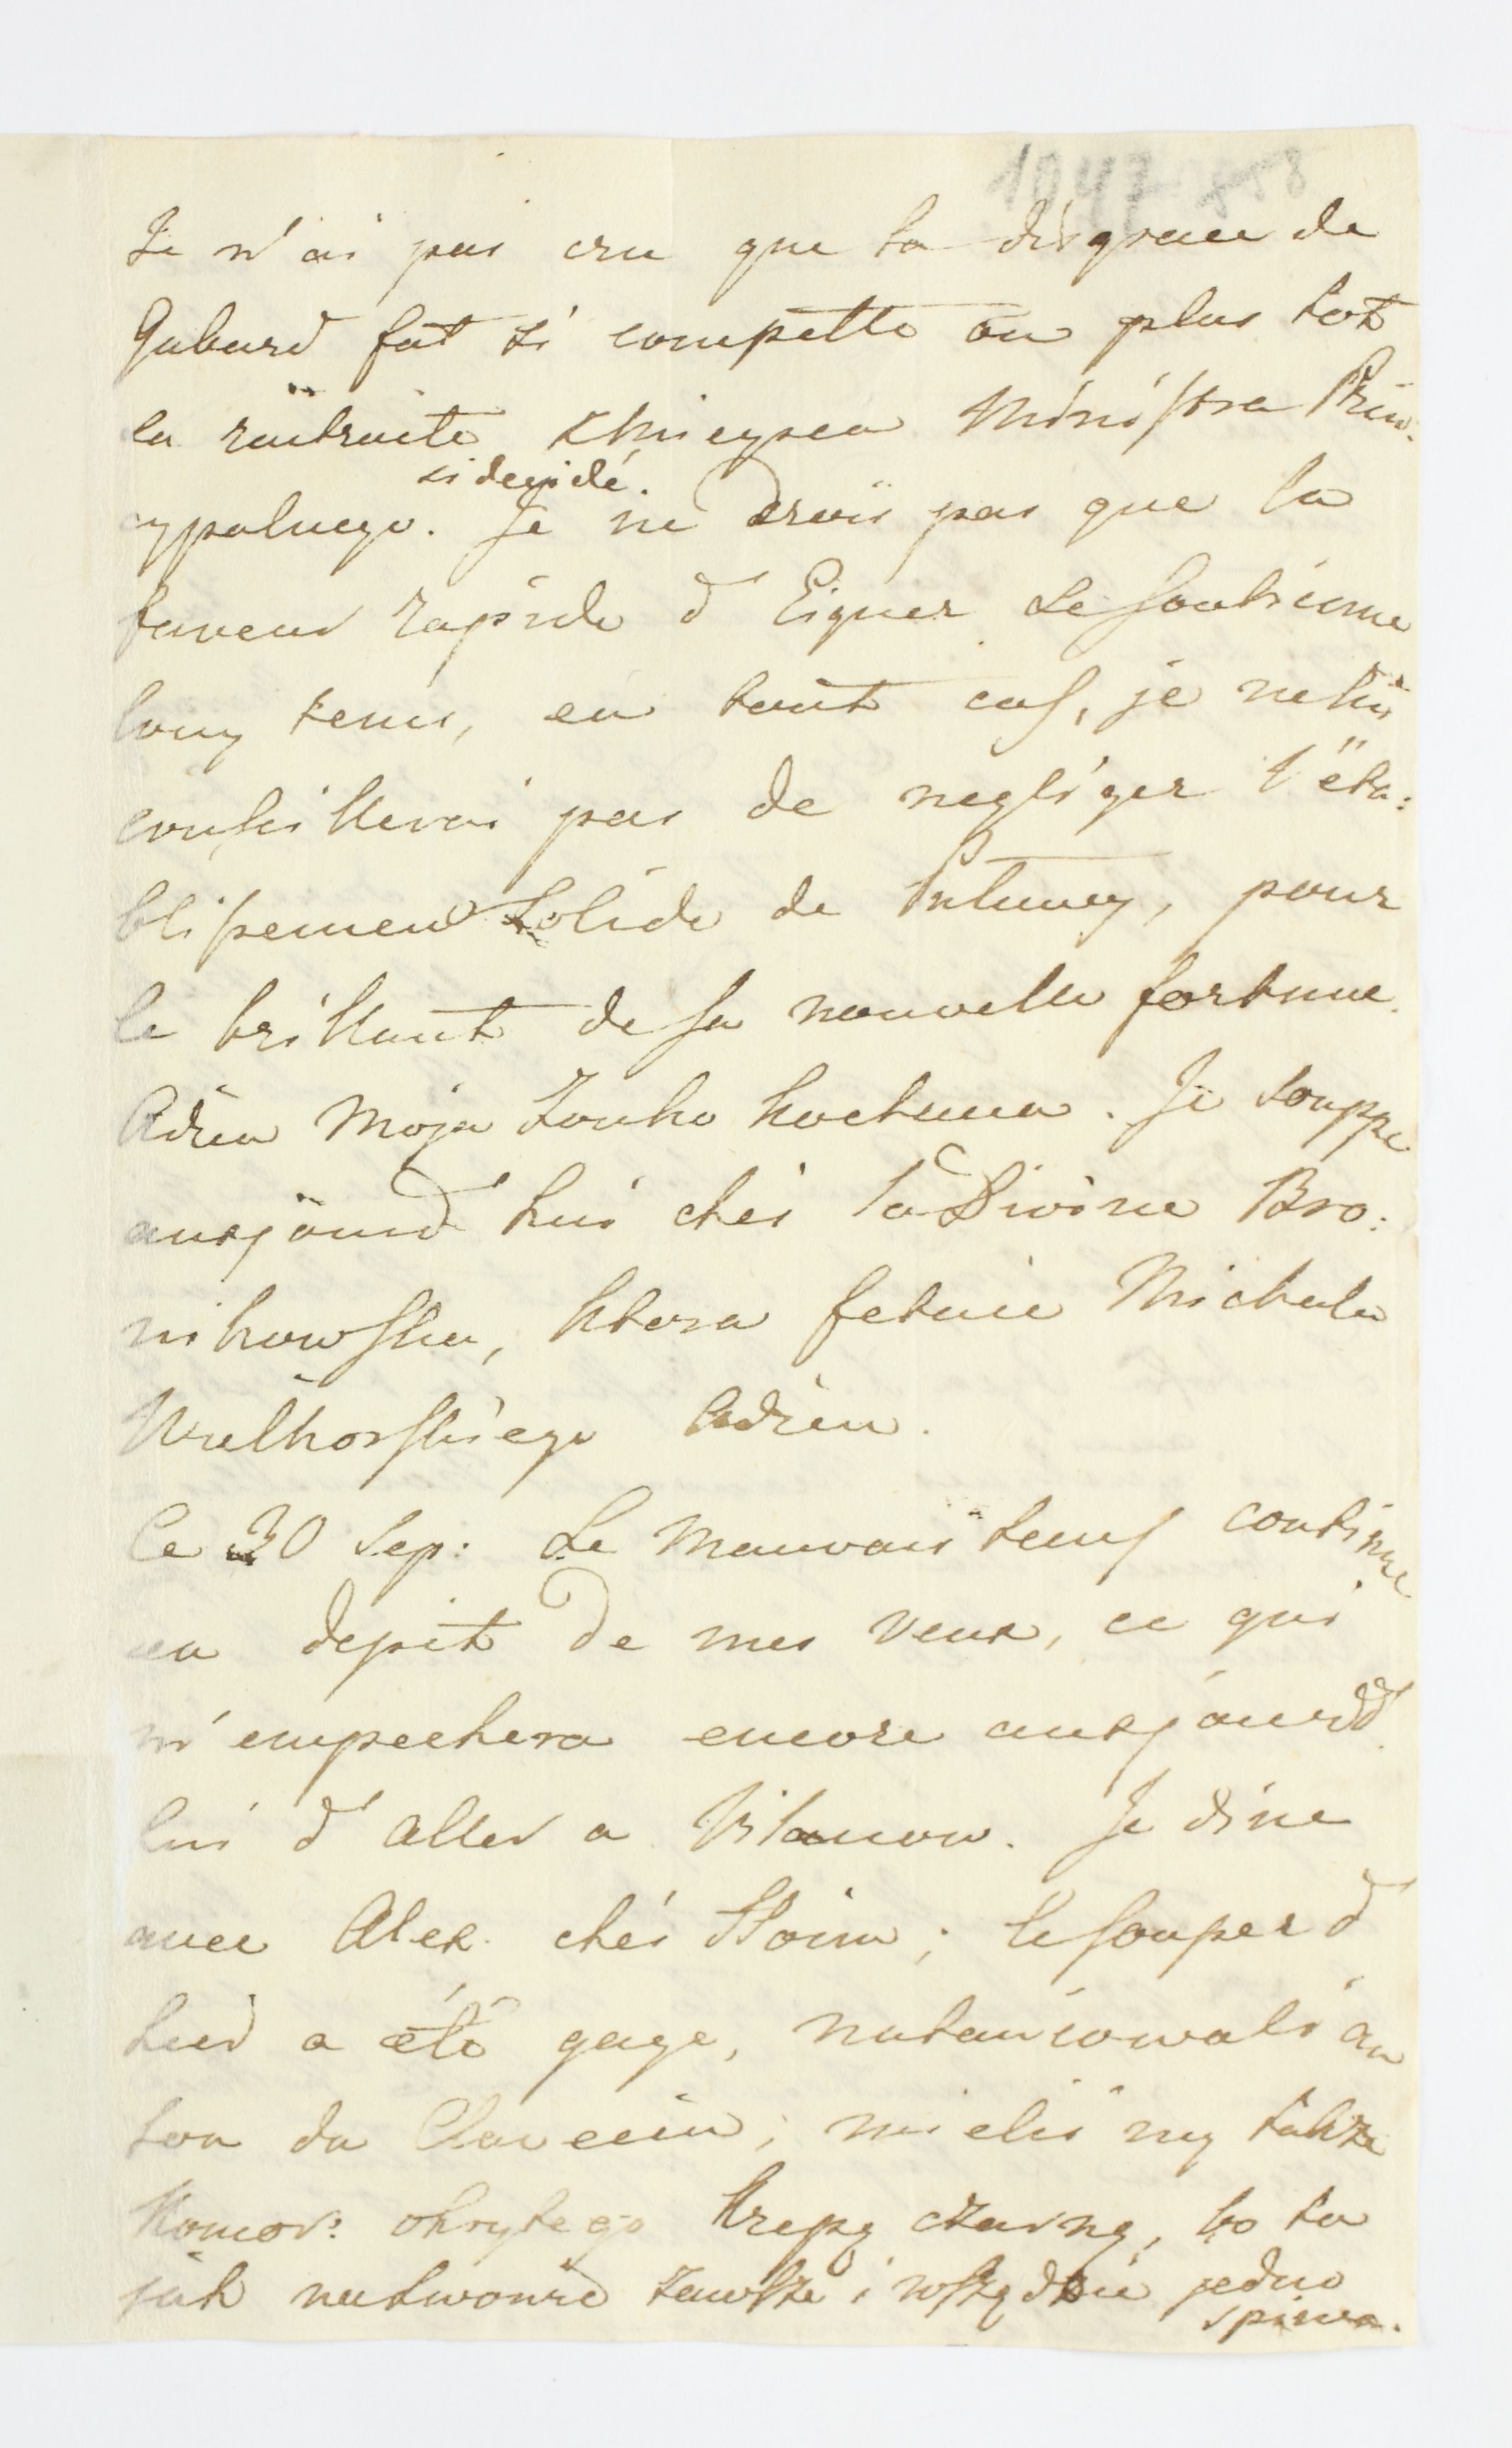 1047 858
Je n'ai pas cru que la disgrace de
Gabard fut si complette ou plus tot
la raitraite Xhniczna Ministra Prin:
si decidé.
cypalnego. Je ne crois pas que la
faveur rapide d'Eigner se soutienne
long tems, en tout cas, je ne lui
conseillerai pas de negliger l'éta:
blissement solide de Pulawy, pour
le brillant de sa nouvelle fortune.
Adieu Moja Zonko kochana. Je souppe
auxjourd'hui chés la Divine Bro:
nikowska, ktora fetuie Michala
Wielhorskiego adieu.
Ce 30 Sep: Le mauvais tems continue
en depit de mes veux, ce qui
m'empechera encore auxjourd'
hui d'aller a Vilanow. Je dine
avec Alex. chés Stoin; le souper d'
hier a été gaye, natancowali au
son du Clavecin; mielismy takze
Komor: okrytego krepą czarną, bo ta
jak natwonre zawsze i wszędzie jedno
spiewa.